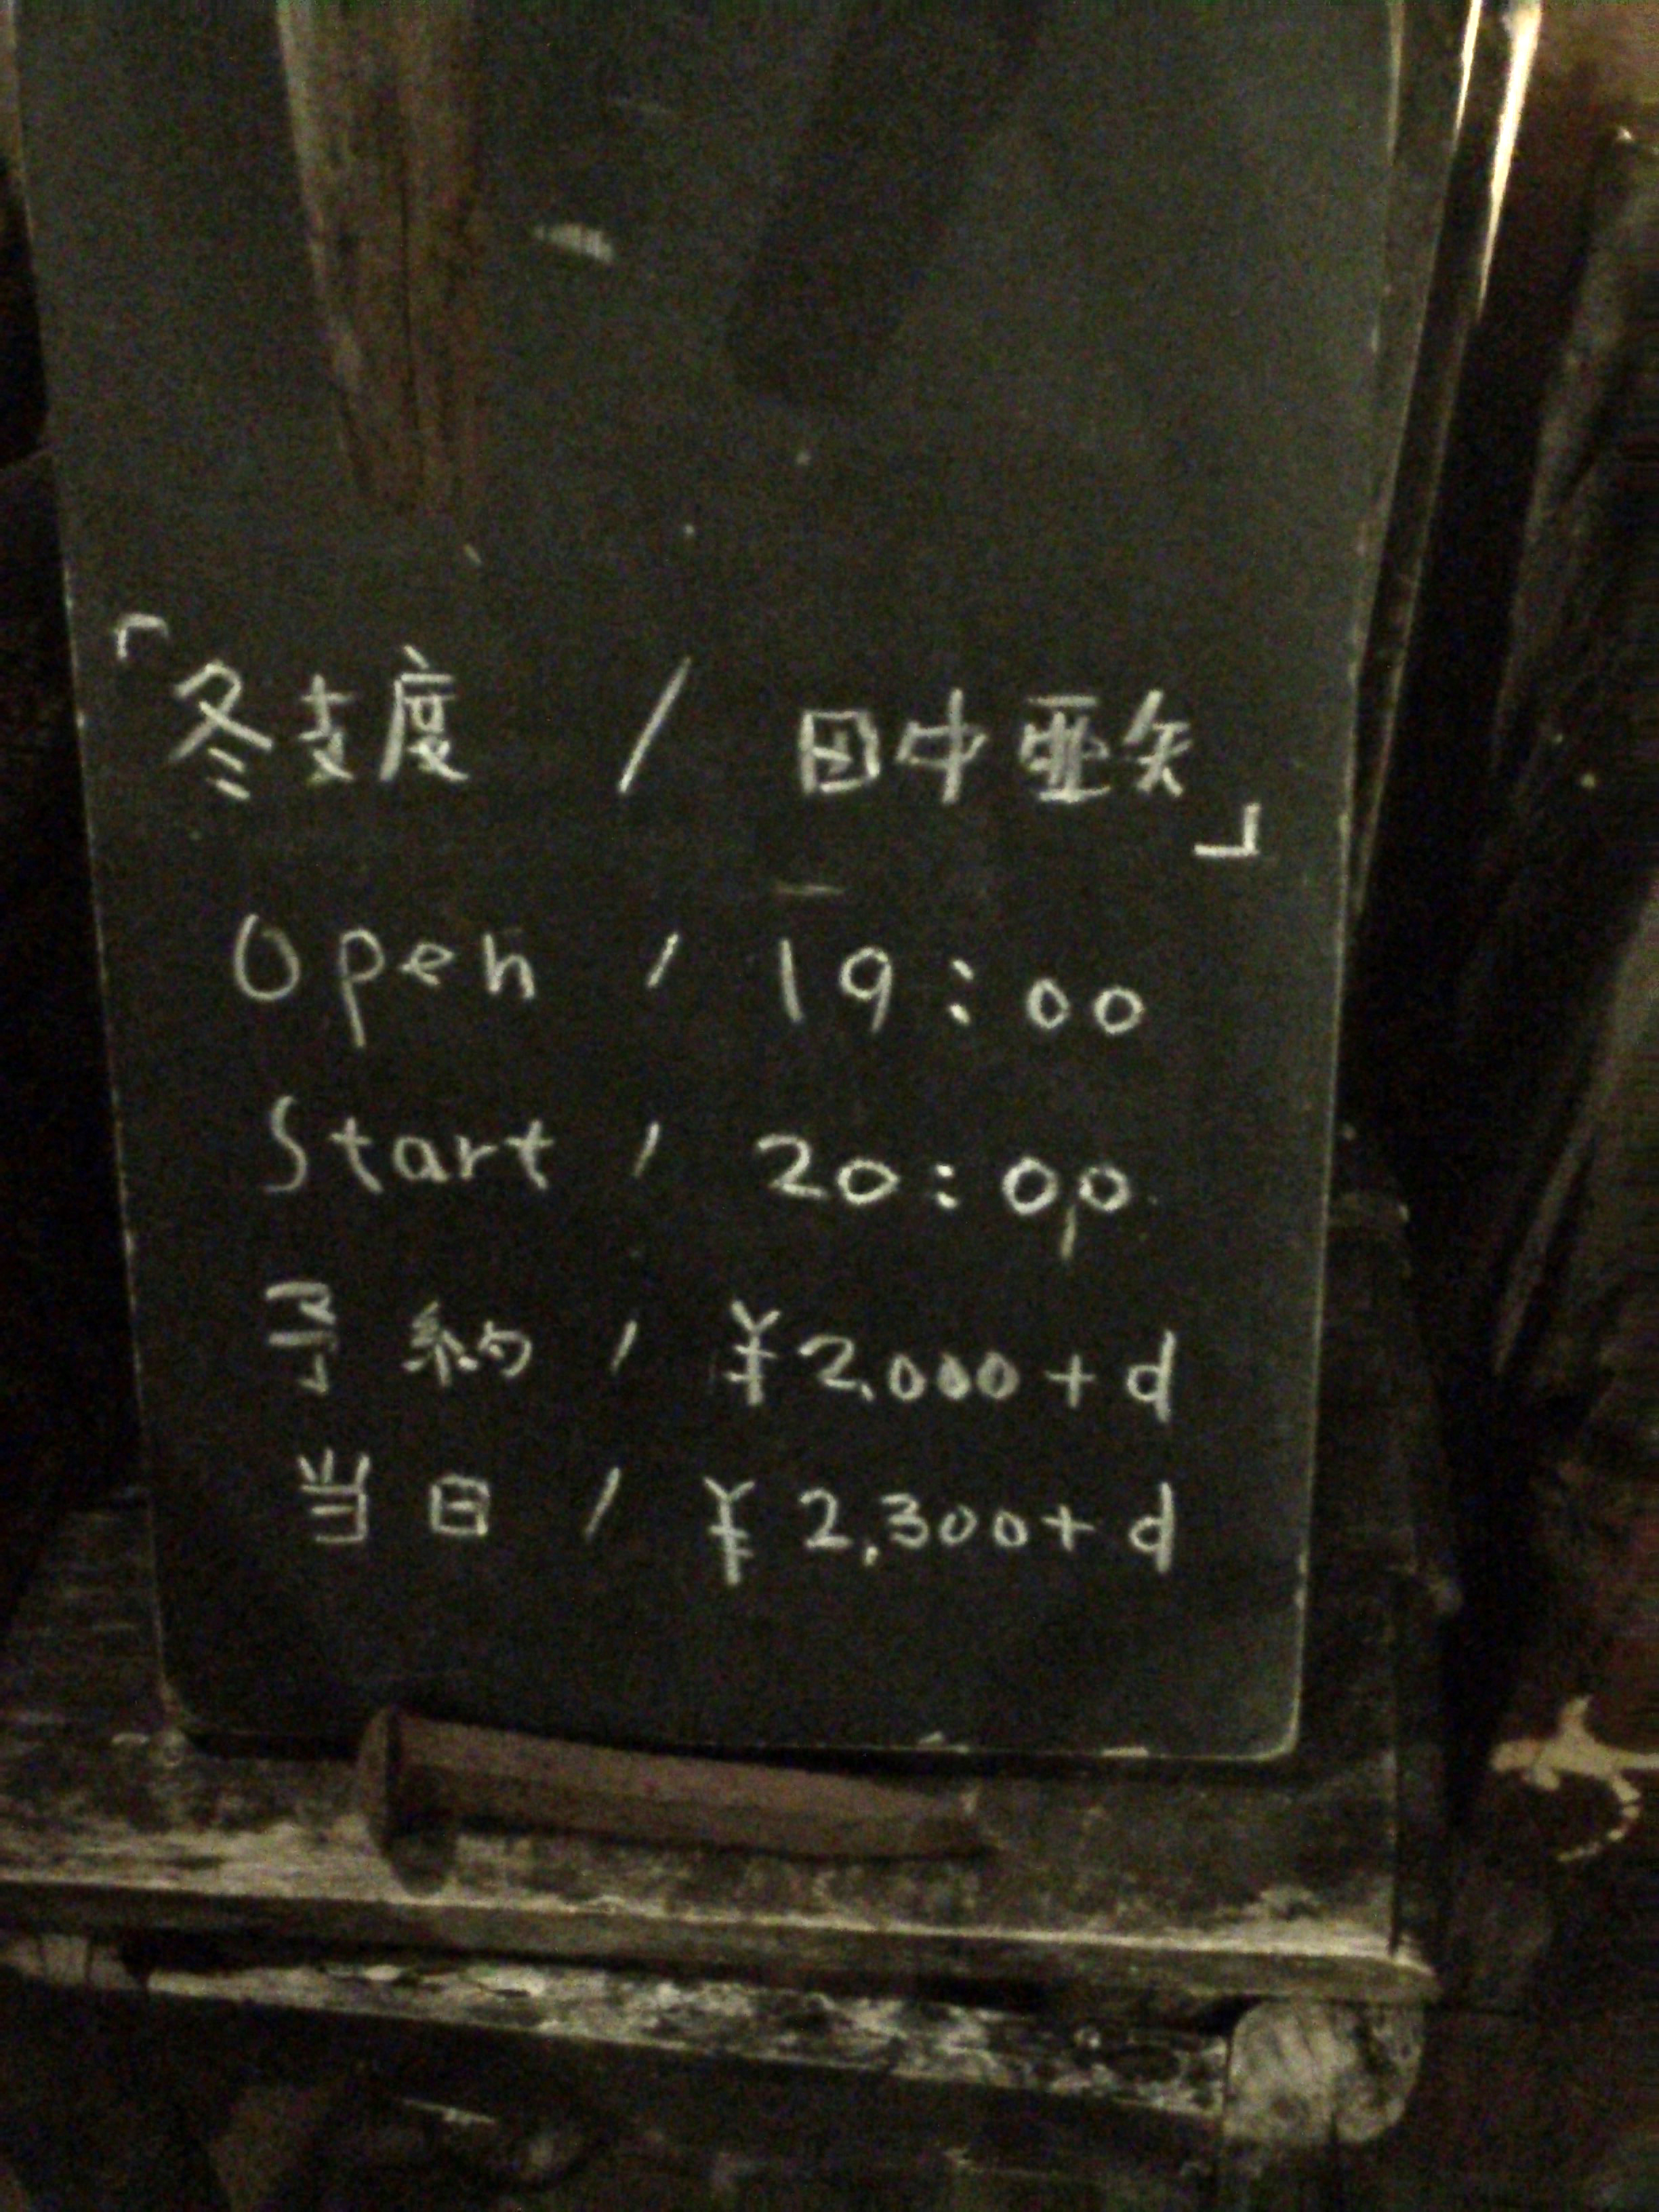 「冬支度 / 田中亜矢」
Open / 19:00
Start / 20:00
予約 / ¥2,000+d
当日 / ¥2,300+d